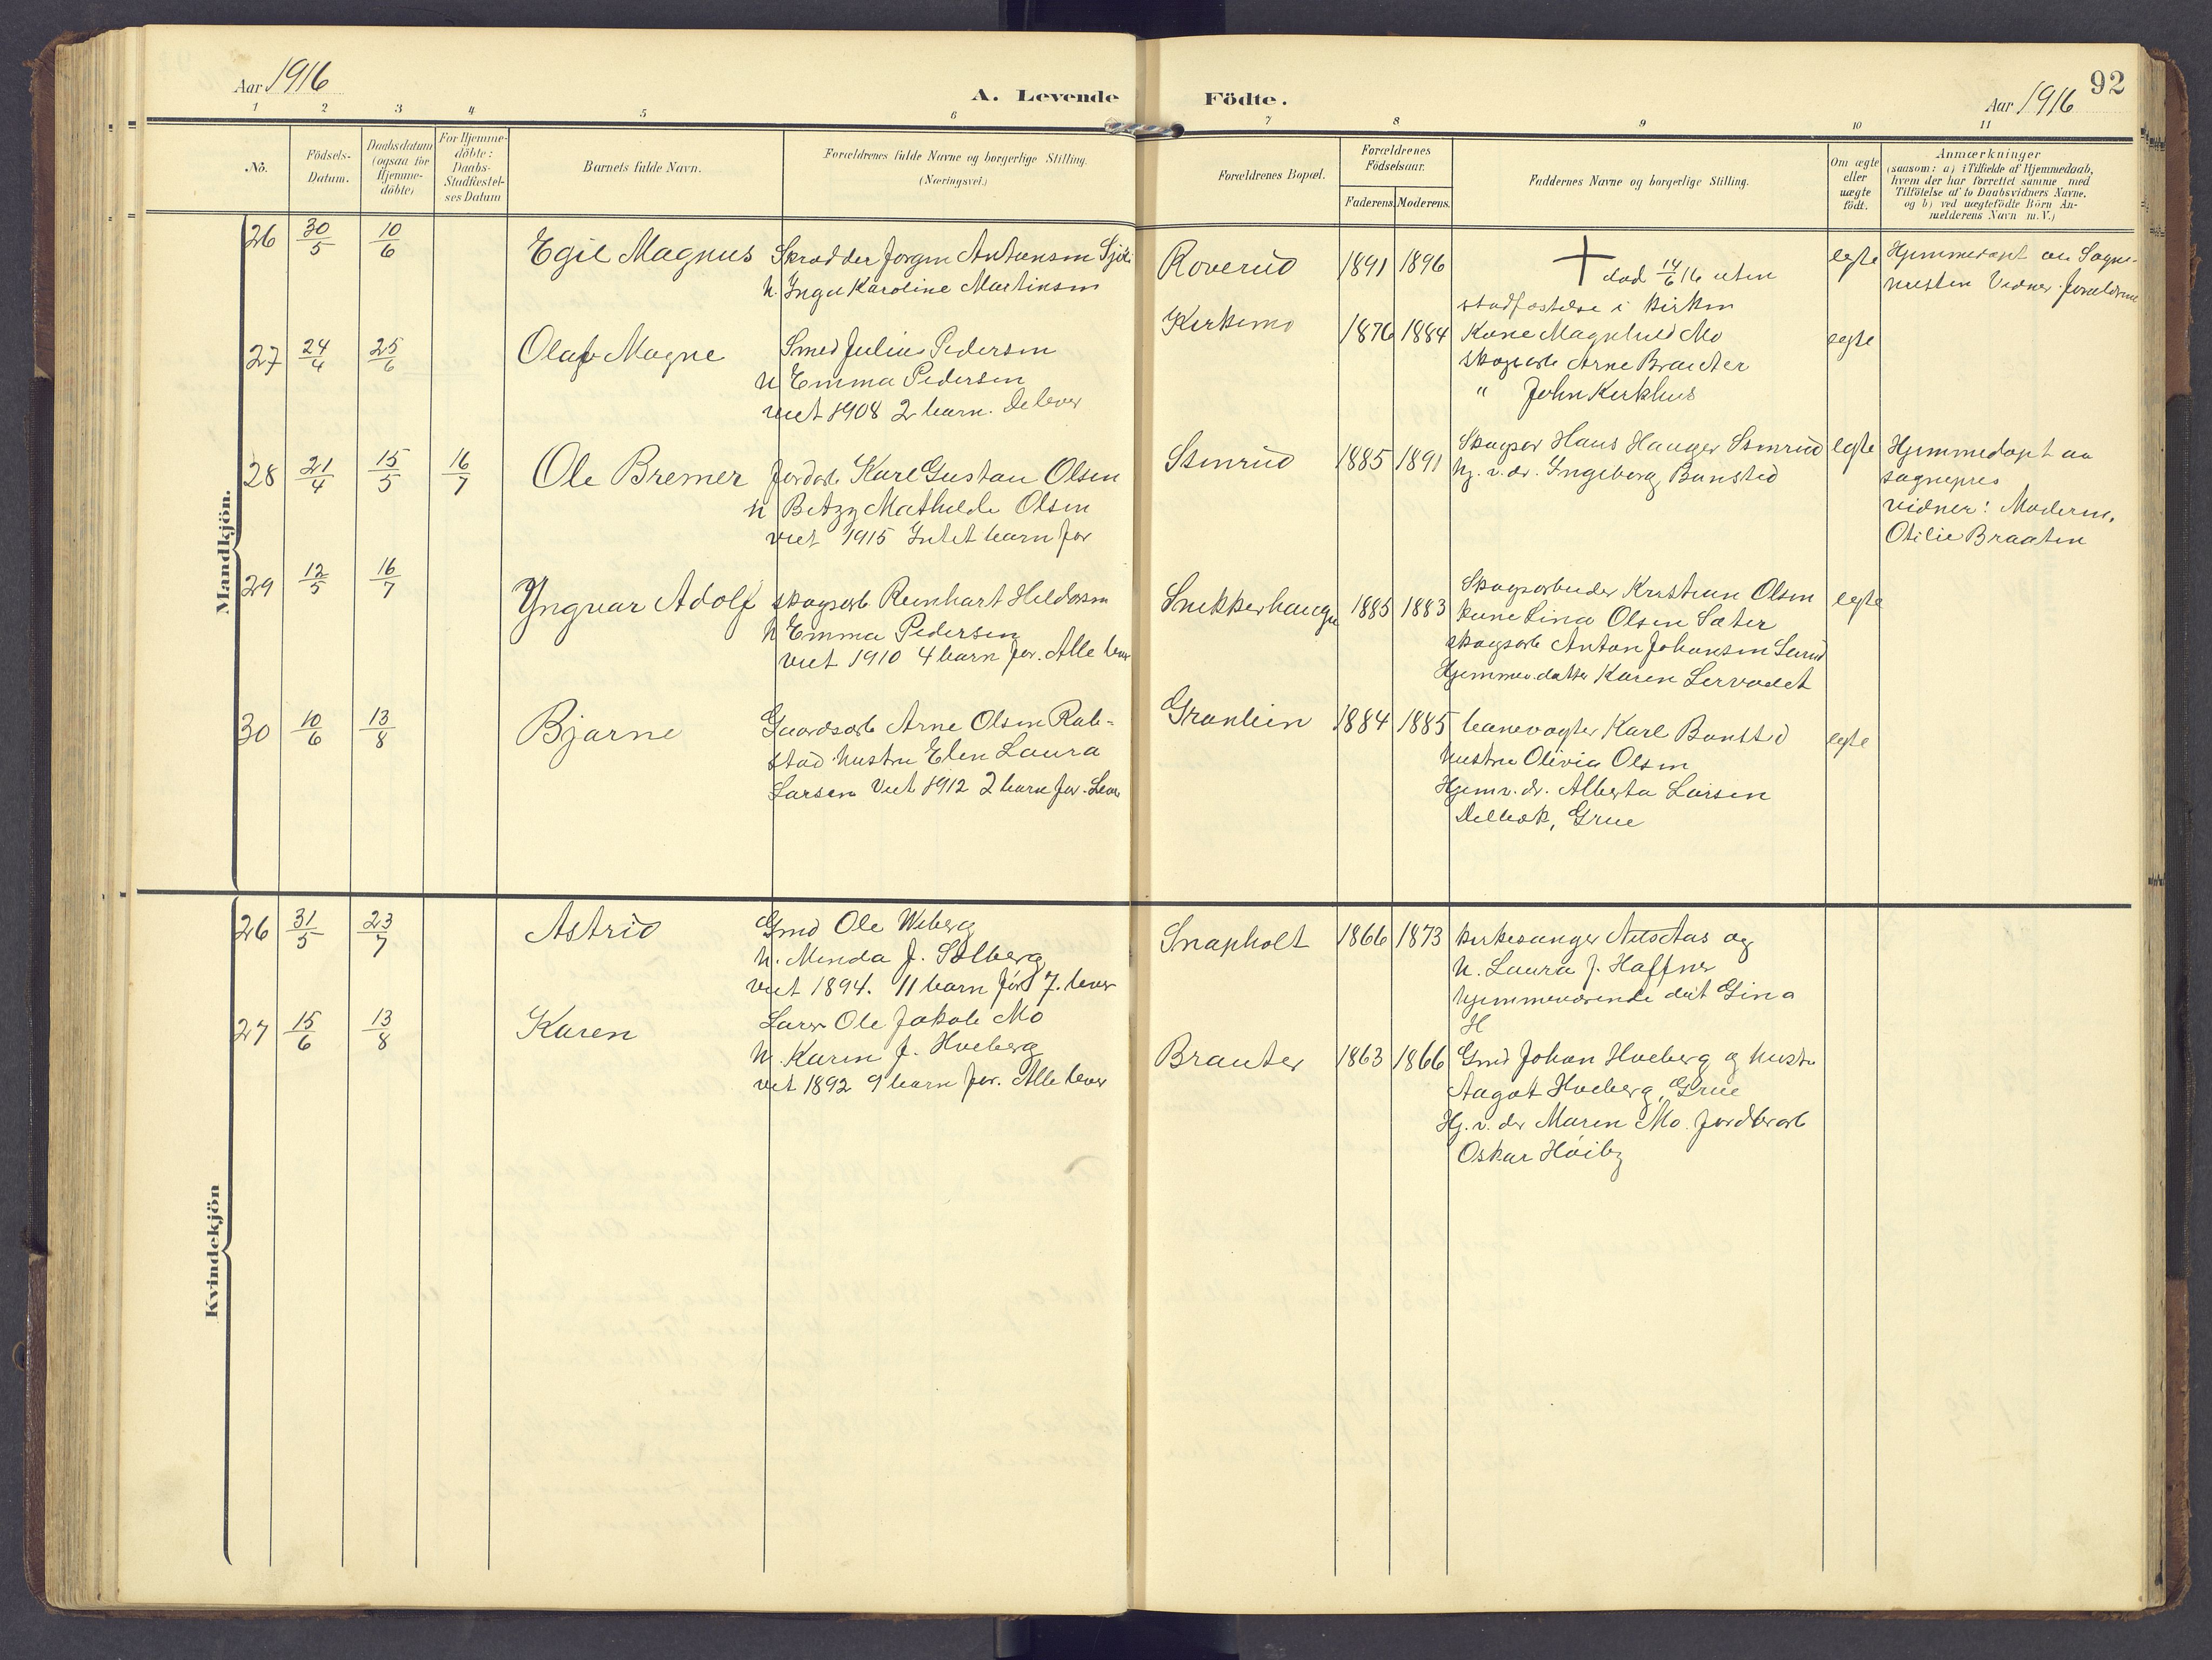 Aar 1916
A. Levende Födte.
Aar 1916
92
1 2 3 4 5 6 7 8 9 10 11
No.
Födsels-Datum.
Daabsdatum (ogsaa for Hjemme-döbte)
For Hjemme-döbte: Daabs-Stadfæstel-ses Datum
Barnets fulde Navn.
Forældrenes fulde Navne og borgerlige Stilling. (Næringsvei.)
Forældrenes Bopæl.
Forældrenes Födselsaar.
Faderens. Moderens.
Faddernes Navne og borgerlige Stilling.
Om ægte eller uægte födt.
Anmærkninger
(saasom: a) i Tilfælde af Hjemmedaab,
hvem der har forrettet samme med
Tilföielse af to Daabsvidners Navne,
og b) ved uægtefödte Börn An-
melderens Navn m.V.)
Mandkjön.
26 30/5 10/6 Egil Magnus
Skrædder Jørgen Antonsen
h. Inga Karoline Martinsen
Roverud 1891 1896
død 14/6 16 uten
stadfæstelse i kirken
egte
Hjemmedøpt av Sogne-
presten Vidner. forældrene
27 24/4 25/6 Olaf Magne
Smed Julius Pedersen
h Emma Pedersen
viet 1908 2 barn. De lever
Kirkemo 1876 1884
Kone Magnhild Mo
skogsarb Arne Brauter
" John Kirkhus
egte
28 21/4 15/5 16/7 Ole Bremer
Jordarb. Karl Gustav Olsen
h Betzy Mathilde Olsen
viet 1915 Intet barn før
Stenrud 1885 1891
Skogsar Hans Hauger Stenrud
hj. v. dr. Ingeborg Banstad
egte
Hjemmedøpt av
sognepres
vidner: Moderen,
Otilie Braaten
29 12/5 16/7 Yngvar Adolf
skogsarb. Reinhart Hildorsen
h Emma Pedersen
viet 1910 4 barn før. Alle lever
Snekkerhaugen 1885 1883
Skogsarbeider Kristian Olsen
kone Lina Olsen Sæter
skogsarb Anton Johansen Lund
Hjemmev. datter Karen Lervadet
egte
30 10/6 13/8 Bjarne
Gaardsarb Arne Olsen Rab-
stad hustru Elen Laura
Larsen Viet 1912 2 barn før. Lever
Granlien 1884 1885
banevogter Karl Banstad
hustru Olivia Olsen
Hjemv. dr. Alberta Larsen
Delbæk, Grue
egte
Kvindekjön
26 31/5 23/7 Astrid
Gmd Ole Weberg
h. Menda J. Solberg
viet 1894. 11 barn før 7. lever
Snapholt 1866 1873
kirkesanger Nils Aas og
h. Laura J. Haffner
hjemmeværende dat Gina
H
27 15/6 13/8 Karen
Lærer Ole Jakob Mo
h. Karen J. Hveberg
viet 1892 9 barn før. Alle lever
Brauter 1863 1866
Gmd Johan Hveberg og hustr
Aagot Hveberg, Grue
Hj. v. dr Maren Mo. Jordbrarb
Oskar Høiby